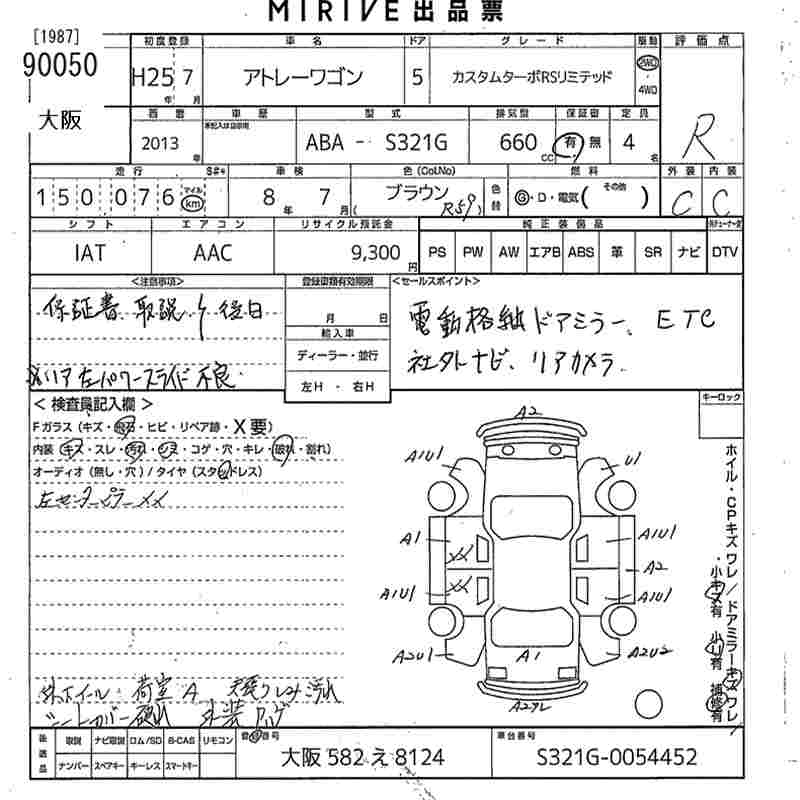 MIRIVE 出品票
[1987]
90050
大阪
初度登録 車名 ドア グレード 駆動 評価点
H25 7 アトレーワゴン 5 カスタムターボRSリミテッド 2WD 4WD
年 月
R
西暦 車歴 型式 排気量 保証書 定員
2013 年 ABA - S321G 660 CC 有 無 4 名
走行 車検 色(Col.No) 燃料 外装 内装
150076 マイル km 8 年 7 月 ブラウン (R59) 色替 G・D・電気 (その他) C C
シフト エアコン リサイクル預託金 純正装備品
IAT AAC 9,300 円 PS PW AW エアB ABS 革 SR ナビ DTV
<注意事項> 登録書類有効期限 <セールスポイント>
保証書 取説 後日
月 日
電動格納ドアミラー、ETC
輸入車
ディーラー・並行
社外ナビ、リアカメラ
左H ・ 右H
リア左パワースライド不良
< 検査員記入欄 > キーロック
Fガラス (キズ・飛石・ヒビ・リペア跡・X要)
内装 (キズ・スレ・汚れ・シミ・コゲ・穴・キレ・破れ・割れ)
オーディオ (無し・穴) / タイヤ (スタッドレス)
左センターピラーXX
A2
A1U1 U1
A1 XX A1U1
XX A2
A1U1 A1U1
A2U1 A1 A2U2
ホイル・CPキズワレ/ドアミラーキズワレ
・小キズ有 小凹有 補修有
外ホイール 荷室A 天張りしみ汚れ
シートカバー破れ 外装
後選品 取説 ナビ取説 ロム/SD B-CAS リモコン 登録番号 車台番号
ナンバー スペアキー キーレス スマートキー 大阪 582 え 8124 S321G-0054452